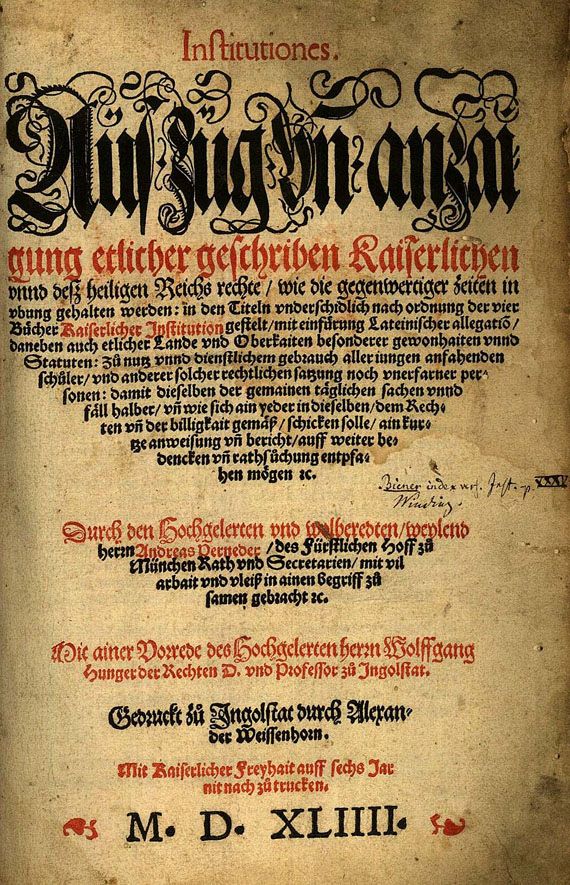 Institutiones.
Auſzug vñ anzai
gung etlicher geſchriben Kaiſerlichen
vnnd deſz heiligen Reichs rechte / wie die gegenwertiger zeiten in
vbung gehalten werden: in den Titeln vnderſchidlich nach ordnung der vier
Bücher Kaiſerlicher Inſtitution geſtelt / mit einfürung Lateiniſcher allegatiõ /
daneben auch etlicher Lande vnd Oberkaiten beſonderer gewonhaiten vnnd
Statuten: Zů nutz vnnd dienſtlichem gebrauch aller iungen anfahenden
ſchüler / vnd anderer ſolcher rechtlichen ſatzung noch vnerfarner per⸗
ſonen: damit dieſelben der gemainen täglichen ſachen vnnd
fäll halber / vñ wie ſich ain yeder in dieſelben / dem Rech⸗
ten vñ der billigkait gemäß / ſchicken ſolle / ain kur⸗
tze anweiſung vñ bericht / auff weiter be⸗
dencken vñ rathſůchung entpfa⸗
hen mögen ꝛc.
Biener index
XXXV
Durch den Hochgelerten vnd wolberedten / weylend
herrn Andreas Perneder / des Fürſtlichen Hoff zů
München Rath vnd Secretarien / mit vil
arbait vnd vleiß in ainen begriff zů
ſamen gebracht ꝛc.
Mit ainer Vorrede des Hochgelerten herrn Wolffgang
Hunger der Rechten D. vnd Profeſſor zů Ingolſtat.
Gedruckt zů Ingolſtat durch Alexan⸗
der Weiſſenhorn.
Mit Kaiſerlicher Freyhait auff ſechs Jar
nit nach zů trucken.
M. D. XLIIII.